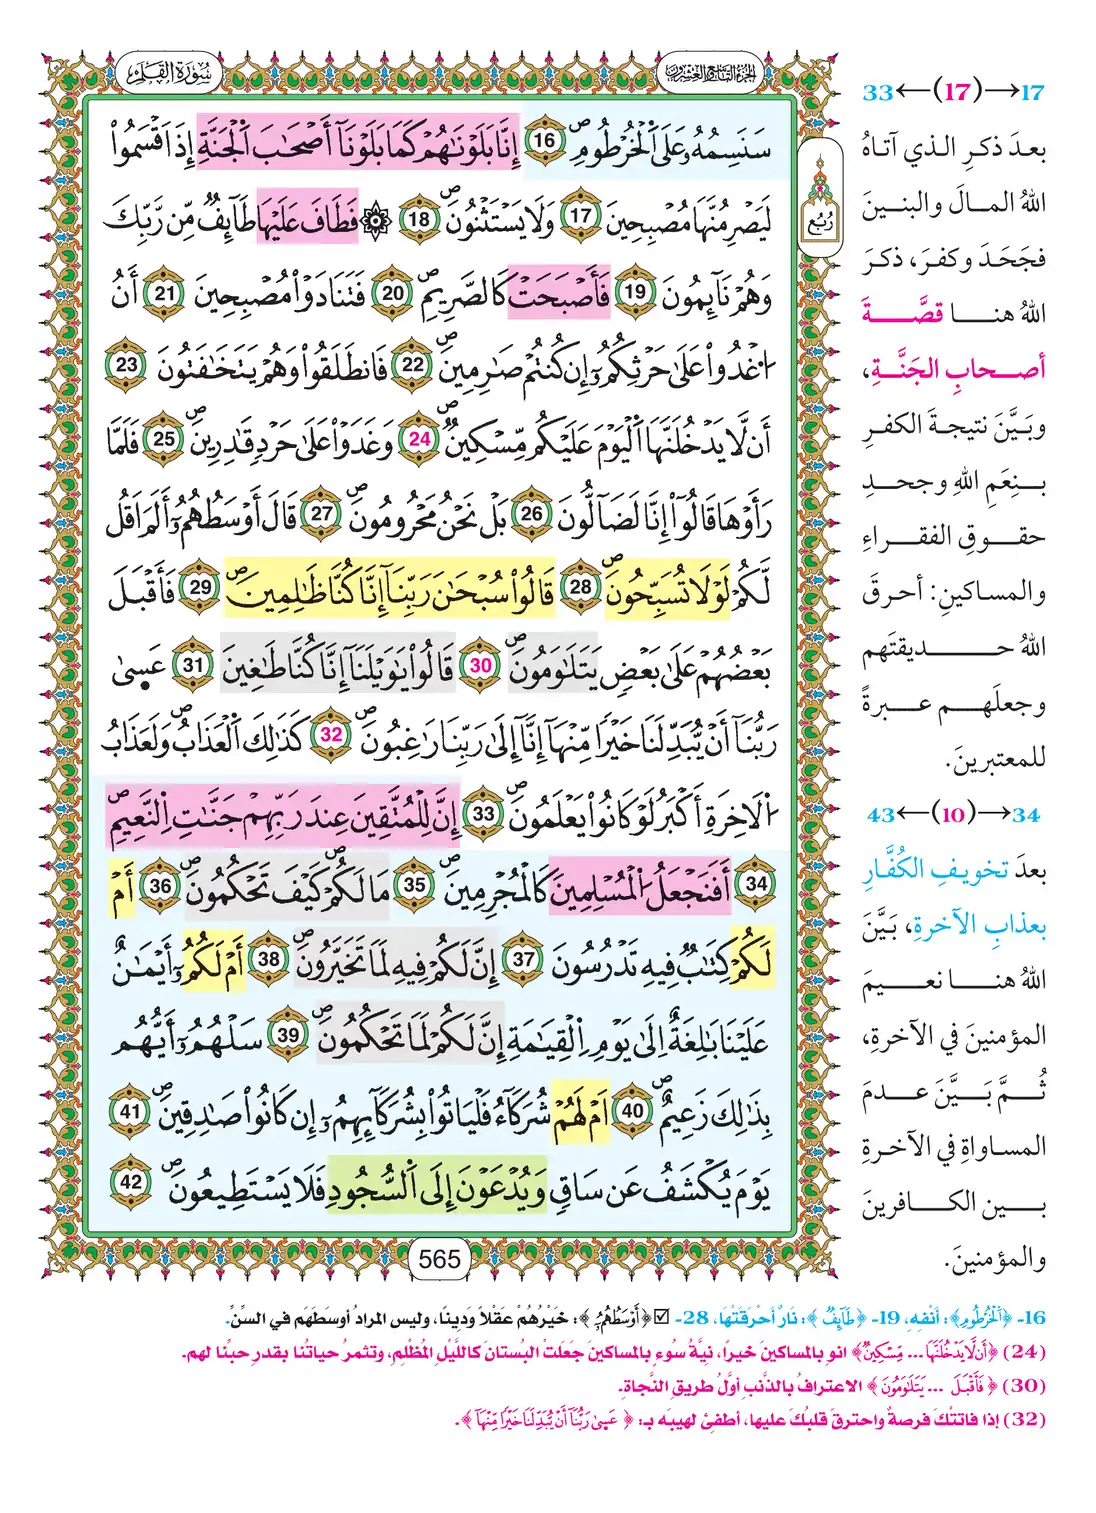 سُورَةُ القَلَمِ
الجُزءُ التَّاسِعُ وَالعِشْرُونَ
سَنَسِمُهُۥ عَلَى ٱلْخُرْطُومِ 16 إِنَّا بَلَوْنَٰهُمْ كَمَا بَلَوْنَآ أَصْحَٰبَ ٱلْجَنَّةِ إِذْ أَقْسَمُوا۟
لَيَصْرِمُنَّهَا مُصْبِحِينَ 17 وَلَا يَسْتَثْنُونَ 18 ۞ فَطَافَ عَلَيْهَا طَآئِفٌ مِّن رَّبِّكَ
وَهُمْ نَآئِمُونَ 19 فَأَصْبَحَتْ كَالصَّرِيمِ 20 فَتَنَادَوْا۟ مُصْبِحِينَ 21 أَنُ
ٱغْدُوا۟ عَلَىٰ حَرْثِكُمُۥٓ إِن كُنتُمْ صَٰرِمِينَ 22 فَانطَلَقُوا۟ وَهُمْ يَتَخَٰفَتُونَ 23
أَن لَّا يَدْخُلَنَّهَا ٱلْيَوْمَ عَلَيْكُم مِّسْكِينٌ 24 وَغَدَوْا۟ عَلَىٰ حَرْدٍ قَٰدِرِينَ 25 فَلَمَّا
رَأَوْهَا قَالُوٓا۟ إِنَّا لَضَآلُّونَ 26 بَلْ نَحْنُ مَحْرُومُونَ 27 قَالَ أَوْسَطُهُمُۥٓ أَلَمَ اَقُل
لَّكُمْ لَوْلَا تُسَبِّحُونَ 28 قَالُوا۟ سُبْحَٰنَ رَبِّنَآ إِنَّا كُنَّا ظَٰلِمِينَ 29 فَأَقْبَلَ
بَعْضُهُمْ عَلَىٰ بَعْضٍ يَتَلَٰوَمُونَ 30 قَالُوا۟ يَٰوَيْلَنَآ إِنَّا كُنَّا طَٰغِينَ 31 عَسَىٰ
رَبُّنَآ أَن يُبَدِّلَنَا خَيْرًا مِّنْهَآ إِنَّآ إِلَىٰ رَبِّنَا رَٰغِبُونَ 32 كَذَٰلِكَ ٱلْعَذَابُ وَلَعَذَابُ
ٱلَاخِرَةِ أَكْبَرُ لَوْ كَانُوا۟ يَعْلَمُونَ 33 إِنَّ لِلْمُتَّقِينَ عِندَ رَبِّهِمْ جَنَّٰتِ ٱلنَّعِيمِ
34 أَفَنَجْعَلُ ٱلْمُسْلِمِينَ كَالْمُجْرِمِينَ 35 مَا لَكُمْ كَيْفَ تَحْكُمُونَ 36 أَمْ
لَكُمْ كِتَٰبٌ فِيهِ تَدْرُسُونَ 37 إِنَّ لَكُمْ فِيهِ لَمَا تَخَيَّرُونَ 38 أَمْ لَكُمُۥٓ أَيْمَٰنٌ
عَلَيْنَا بَٰلِغَةٌ إِلَىٰ يَوْمِ ٱلْقِيَٰمَةِ إِنَّ لَكُمْ لَمَا تَحْكُمُونَ 39 سَلْهُمُۥٓ أَيُّهُم
بِذَٰلِكَ زَعِيمٌ 40 أَمْ لَهُمْ شُرَكَآءُ فَلْيَاتُوا۟ بِشُرَكَآئِهِمُۥٓ إِن كَانُوا۟ صَٰدِقِينَ 41
يَوْمَ يُكْشَفُ عَن سَاقٍ وَيُدْعَوْنَ إِلَى ٱلسُّجُودِ فَلَا يَسْتَطِيعُونَ 42
565
رُبُع
17→(17)←33
بعدَ ذكرِ الذي آتاهُ
اللهُ المالَ والبنينَ
فجَحَدَ وكفرَ، ذكرَ
اللهُ هنا قصَّةَ
أصحابِ الجَنَّةِ،
وبَيَّنَ نتيجةَ الكفرِ
بنِعَمِ اللهِ وجحدِ
حقوقِ الفقراءِ
والمساكينِ: أحرقَ
اللهُ حديقتَهم
وجعلَهم عبرةً
للمعتبرينَ.
34→(10)←43
بعدَ تخويفِ الكُفَّارِ
بعذابِ الآخرةِ، بَيَّنَ
اللهُ هنا نعيمَ
المؤمنينَ في الآخرةِ،
ثُمَّ بَيَّنَ عدمَ
المساواةِ في الآخرةِ
بين الكافرينَ
والمؤمنينَ.
16- ﴿ٱلْخُرْطُومِ﴾: أَنْفِهِ، 19- ﴿طَآئِفٌ﴾: نَارٌ أَحْرَقَتْهَا، 28- ☑﴿أَوْسَطُهُمُۥ﴾: خَيْرُهُمْ عَقْلاً وَدِيناً، وليس المرادُ أوسطَهَم في السِّنِّ.
(24) ﴿أَن لَّا يَدْخُلَنَّهَا ... مِّسْكِينٌ﴾ انو بالمساكينَ خيراً، نيَّةُ سُوءٍ بالمساكين جَعَلَت البُستان كاللَّيْلِ المُظْلِمِ، وتثمرُ حياتُنا بقدرِ حبِّنا لهم.
(30) ﴿فَأَقْبَلَ ... يَتَلَٰوَمُونَ﴾ الاعترافُ بالذَّنبِ أوَّلُ طريقِ النَّجاةِ.
(32) إذا فاتتْكَ فرصةٌ واحترقَ قلبُكَ عليها، أطفئْ لهيبَه بـ: ﴿عَسَىٰ رَبُّنَآ أَن يُبَدِّلَنَا خَيْرًا مِّنْهَآ﴾.